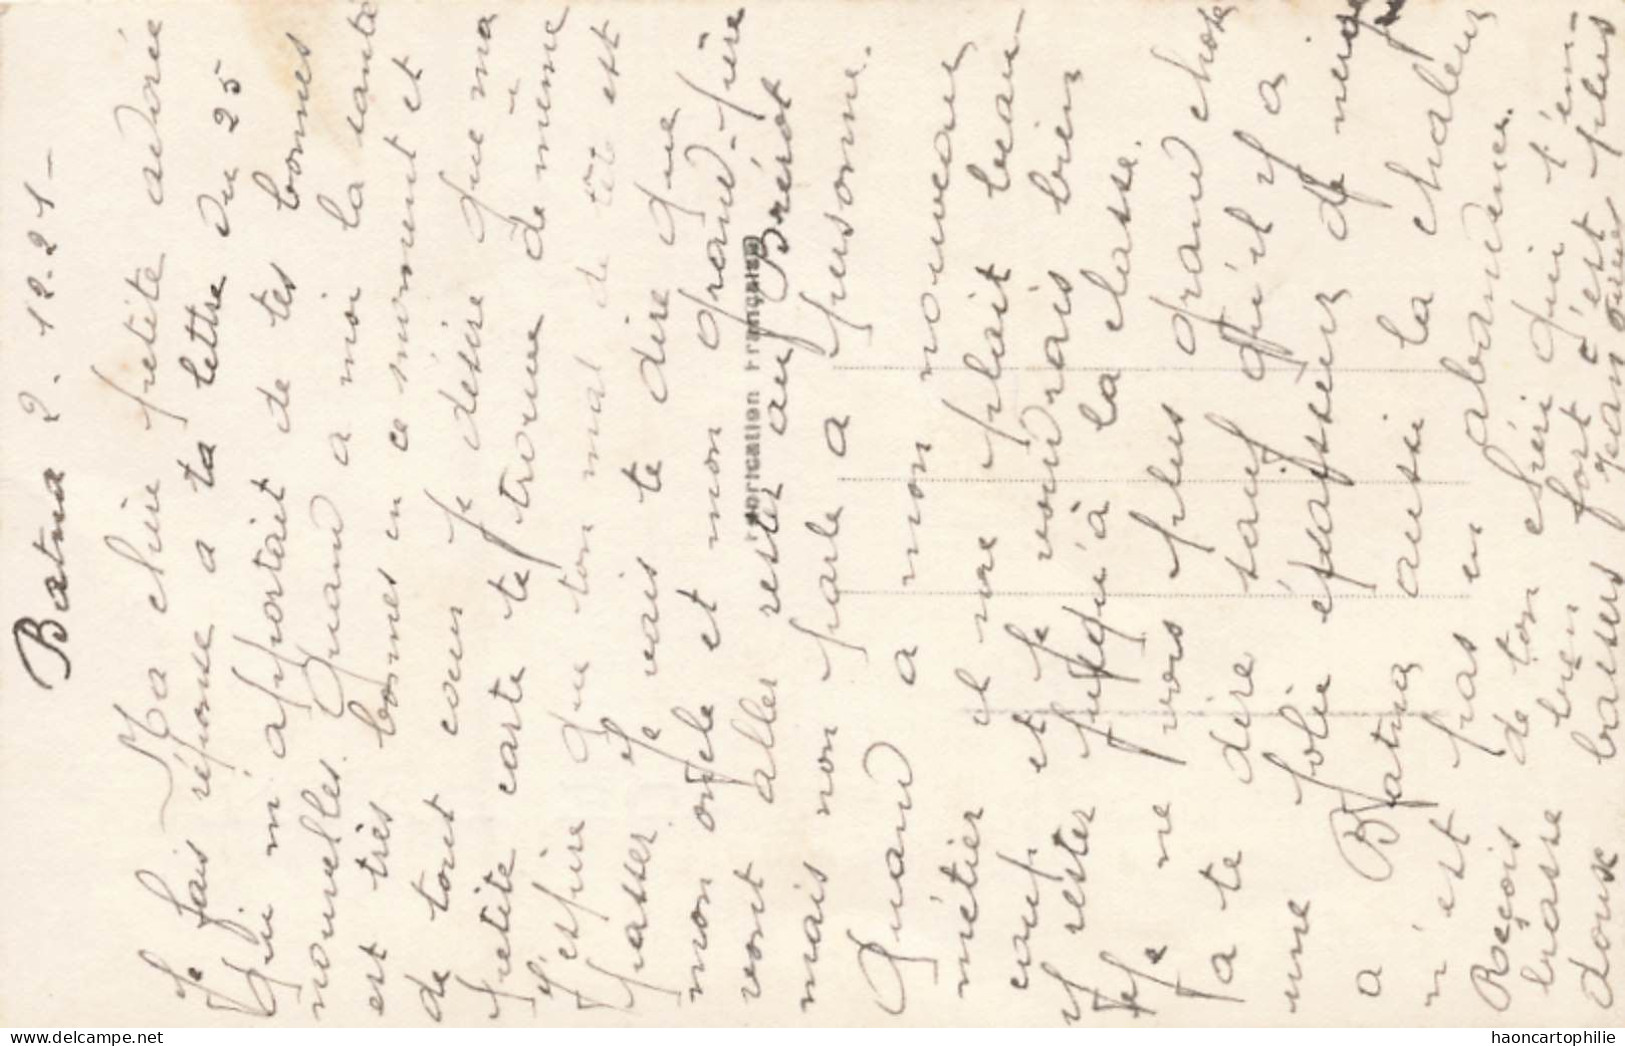 Batna 2.12.21-
Ma chère petite adorée
Je fais réponse a ta lettre du 25
qui m'apportait de tes bonnes
nouvelles. Quand a moi la santé
est très bonnes en ce moment et
de tout cœur je désire que ma
petite carte te trouve de même
J'espère que ton mal de tête est
passer. Je vais te dire que
mon oncle et mon grand-père
vont aller rester au Brérot
mais non parle a personne.
Quand a mon nouveau
métier il me plait beau-
coup et je voudrais bien
y rester jusqu'à la classe.
Je ne vois plus grand chose
a te dire sauf qu'il y a
une jolie épaisseur de neige
a Batna aussi la chaleur
n'est pas en abondance.
Reçois de ton chéri qui t'em-
brasse bien fort c'est plus
doux baisers Jean
Fabrication Française
haoncartophilie